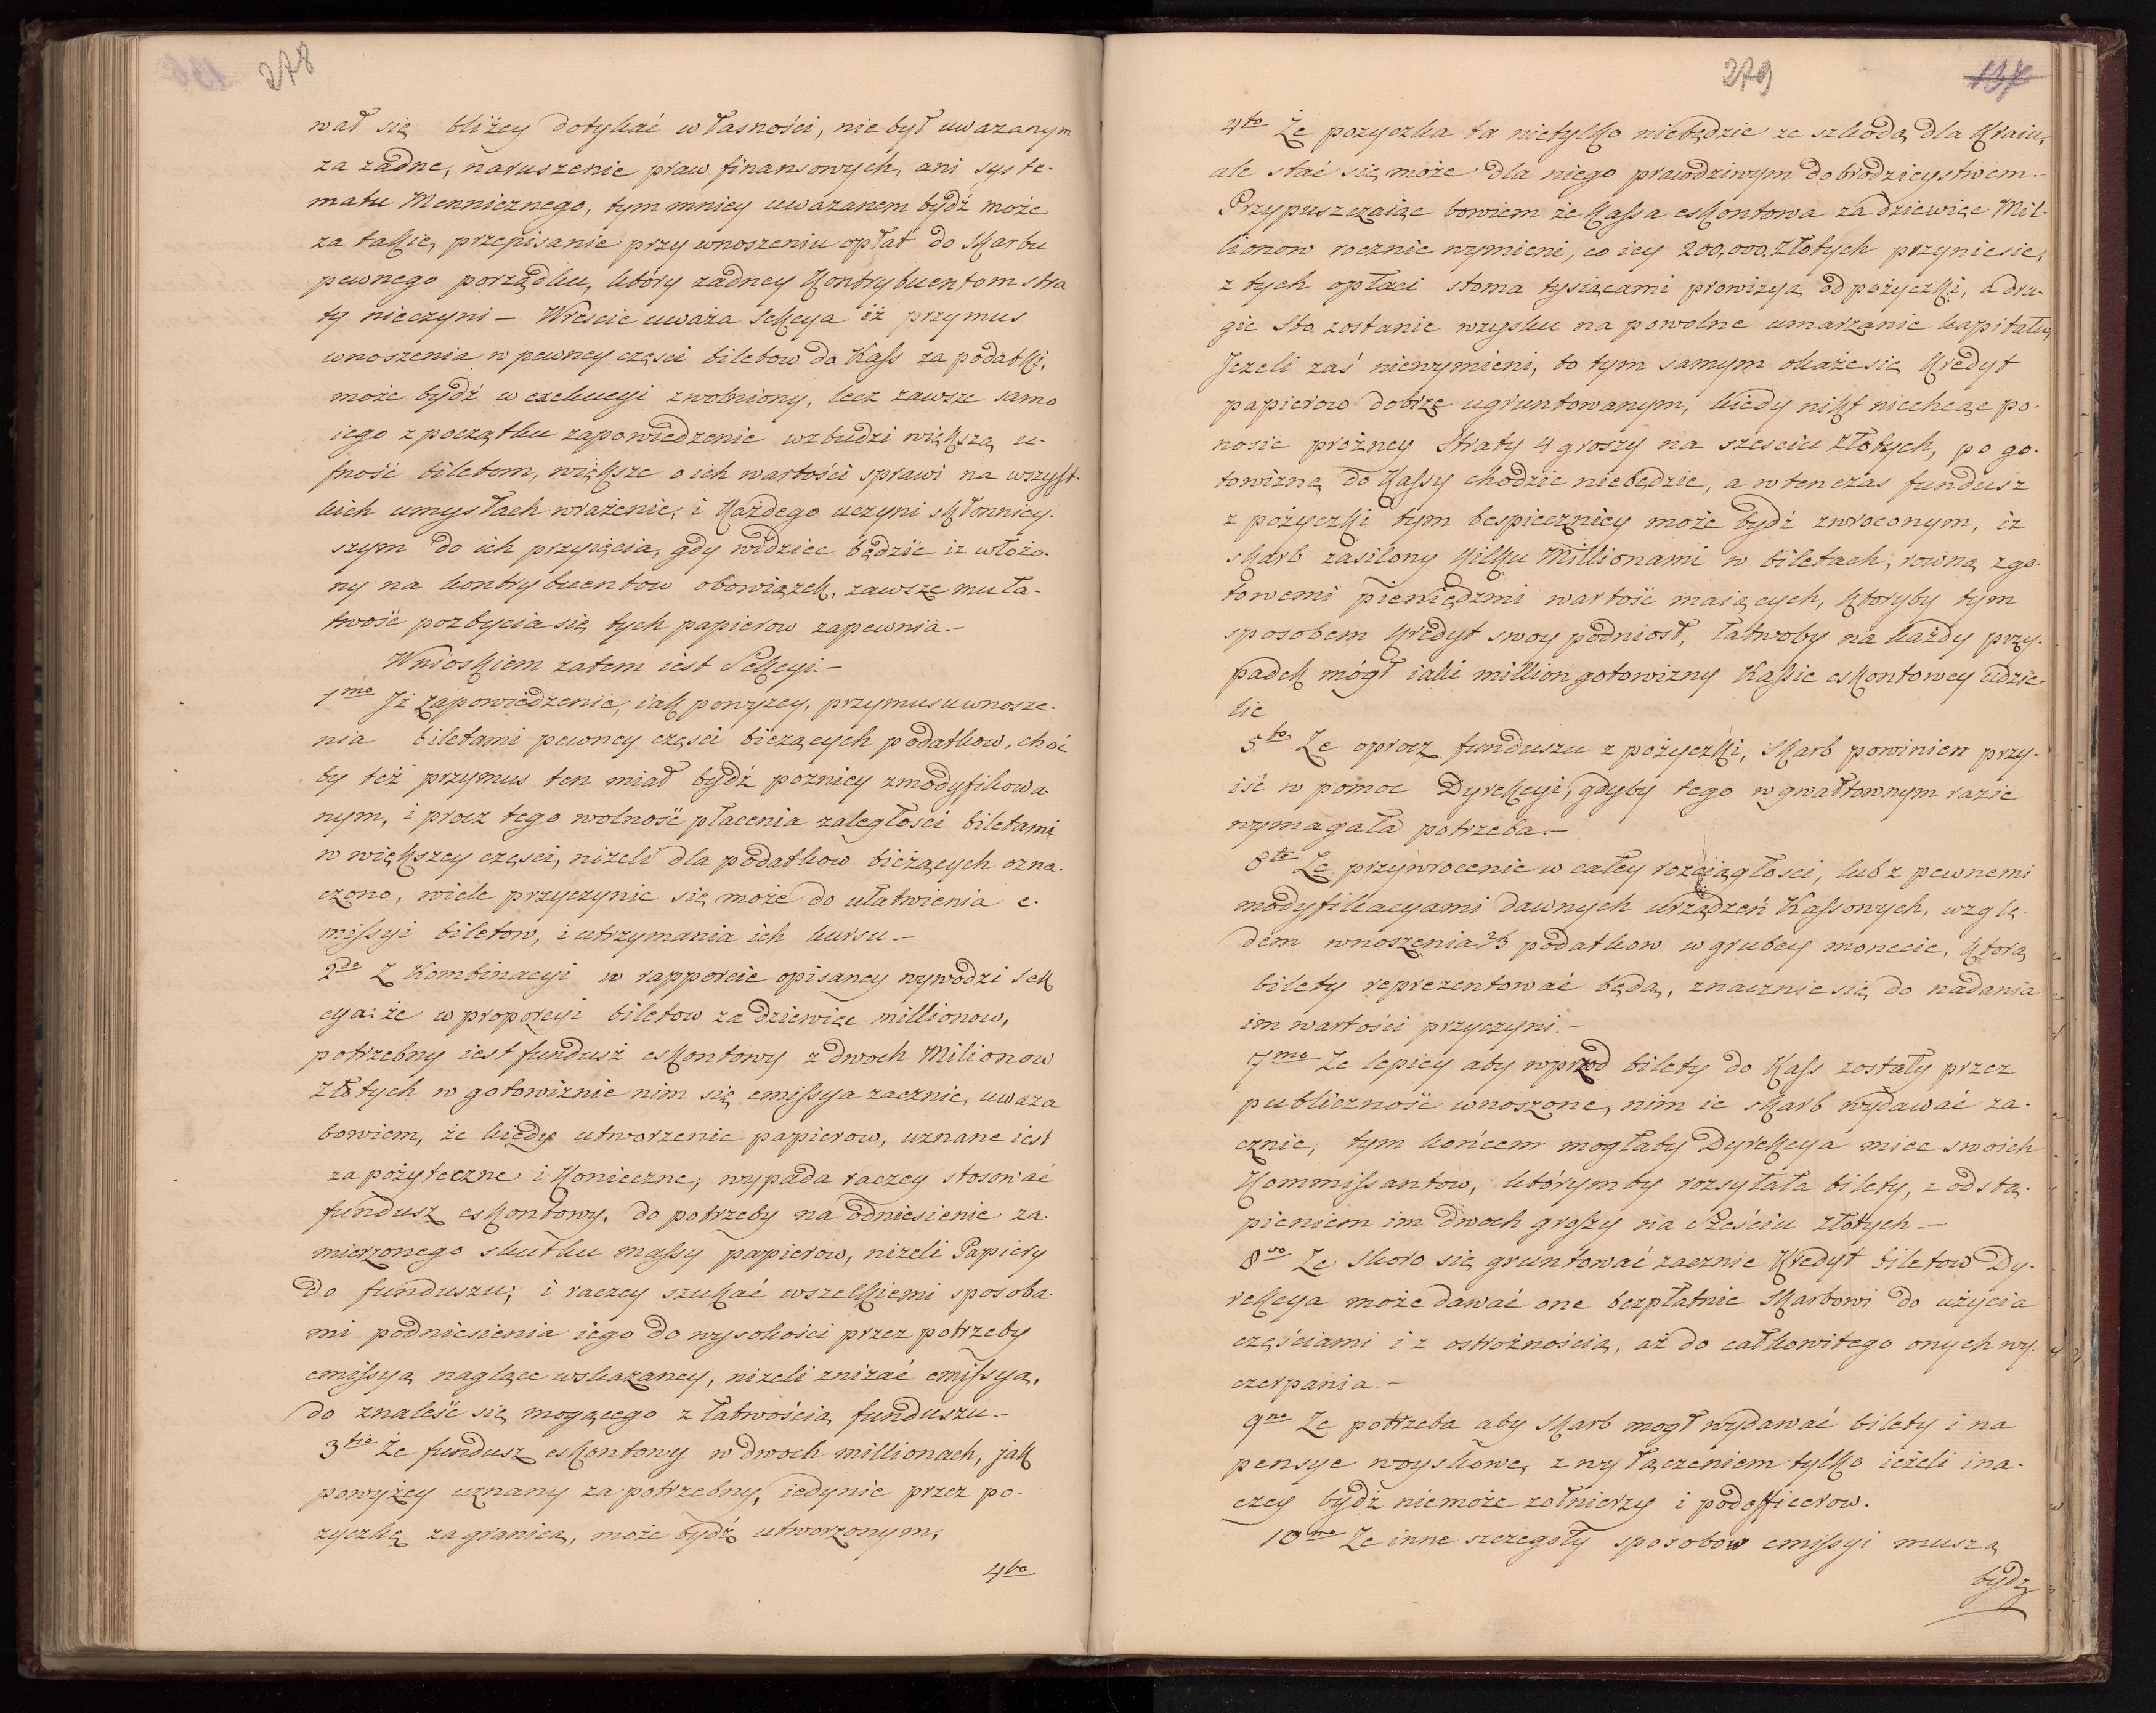 278
wał się bliżey dotykać własności, nie był uwazanym
za żadne, naruszenie praw finansowych, ani syste-
matu Mennicznego, tym mniey uważanem bydź może
za takie, przepisanie przy wnoszeniu opłat do Skarbu
pewnego porządku, który żadney Kontrybuentom stra
ty nieczyni – Wreście uważa Sekcya iż przymus
wnoszenia w pewney części biletow do Kass za podatki,
może bydź w exekucyi zwolniony, lecz zawsze samo
iego z początku zapowiedzenie wzbudzi większą u-
fność biletom, większe o ich wartości sprawi na wszyst-
kich umysłach wrażenie, i Każdego uczyni skłonniey-
szym do ich przyięcia, gdy widziec będzie iz włożo-
ny na kontrybuentow obowiązek, zawsze mu ła-
twość pozbycia się tych papierow zapewnia.–
Wnioskiem zatem iest Sekcyi.–
1mo Iż zapowiedzenie, iak powyzey, przymusu wnosze-
nia biletami pewney części bieżących podatkow, choć
by też przymus ten miał bydź pozniey zmodyfikowa-
nym, i procz tego wolność płacenia zaległości biletami
w większey części, nizeli dla podatkow bieżących ozna-
czono, wiele przyczynic się może do ułatwienia e-
missyi biletow, i utrzymania ich kursu.–
2do Z Kombinacyi w rapporcie opisaney wywodzi Sek
cya: że w proporcyi biletow za dziewięc millionow,
potrzebny iest fundusz eskontowy z dwoch Milionow
Złotych w gotowiznie nim się emissya zacznie, uwaza
bowiem, że kiedy utworzenie papierow, uznane iest
za pożyteczne i Konieczne, wypada raczey stosować
fundusz eskontowy, do potrzeby na odniesienie za-
mierzonego skutku massy papierow, niżeli Papiery
do funduszu; i raczey szukać wszelkiemi sposoba-
mi podniesienia iego do wysokości przez potrzeby
emissyą naglące wskazaney, nizeli znizać emissyą,
do znaleść się mogącego z łatwością funduszu.–
3tio Że fundusz eskontowy w dwoch millionach, jak
powyżey uznany za potrzebny, iedynie przez po-
zyczkę zagranicą, może bydź utworzonym,
4to
279
137
4to Że pozyczka ta nietylko niebędzie ze szkodą dla Kraiu,
ale stać się może dla niego prawdziwym dobrodzieystwem.–
Przypuszczaiąc bowiem że Kassa eskontowa za dziewięc Mil-
lionow rocznie wymieni, co iey 200,000. Złotych przyniesie,
z tych opłaci stoma tysiącami prowizyą od pożyczki, a dru-
gie Sto zostanie wzysku na powolne umarzanie kapitału,
Jezeli zaś niewymieni, to tym samym okaże się Kredyt
papierow dobrze ugruntowanym, kiedy nikt niechcąc po-
nosic prożney straty 4 groszy na szesciu Złotych, po go-
towiznę do Kassy chodzić niebędzie, a wtenczas fundusz
z pożyczki tym bespieczniey może bydź zwroconym, iz
skarb zasilony kilku Millionami w biletach, rowną z go-
towemi pieniędzmi wartość maiących, ktoryby tym
sposobem Kredyt swoy podniosł, łatwoby na każdy przy-
padek mógł iaki million gotowizny Kassie eskontowey udzie-
lic
5to Ze oprocz funduszu z pożyczki, Skarb powinien przy-
iść w pomoc Dyrekcyi, gdyby tego w gwałtownym razie
wymagała potrzeba.–
6to Że przywrocenie w całey rozciągłości, lub z pewnemi
modyfikacyami dawnych urządzeń Kassowych, wzglę-
dem wnoszenia 2/3 podatkow w grubey monecie, ktorą
bilety reprezentować będą, znacznie się do nadania
im wartości przyczyni.–
7mo Ze lepiey aby wprzod bilety do Kass zostały przez
publiczność wnoszone, nim ie skarb wydawać za-
cznie, tym końcem mogłaby Dyrekcya miec swoich
Kommissantow, którymby rozsyłała bilety, z odstą-
pieniem im dwoch groszy na Sześciu złotych.–
8vo Ze skoro się gruntować zacznie Kredyt biletow Dy-
rekcya może dawać one bezpłatnie Skarbowi do użycia
częściami i z ostrożnością, aż do całkowitego onych wy-
czerpania.–
9no Ze potrzeba aby Skarb mogł wydawać bilety i na
pensye woyskowe, z wyłączeniem tylko ieżeli ina-
czey bydź niemoże zołnierzy i podofficerow.
10mo Ze inne szczegoły sposobow emissyi muszą
bydz